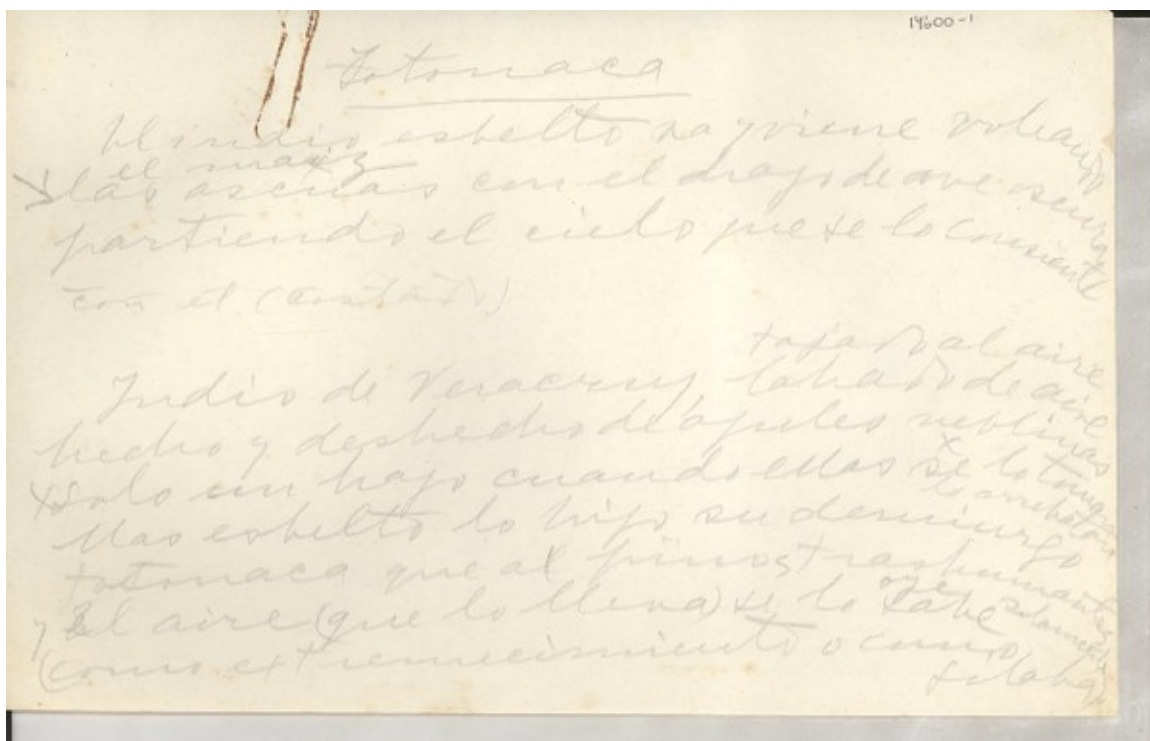 14600-1
Totonaca
El indio esbelto va y viene voleando
el maíz
las ascuas con el de ave oscura
partiendo el cielo que se lo consiente
con el (costado)
tajado al aire
Indio de Veracruz, labrado de aire
hecho y deshecho de azules neblinas
solo un hajo cuando ellas se lo toman
lo arrebatan
Mas esbelto lo hizo su demiurgo
totonaca que al pino, trashumante
y El aire (que lo lleva) se lo sabe
oye
(como extremecimiento o como
silaba)